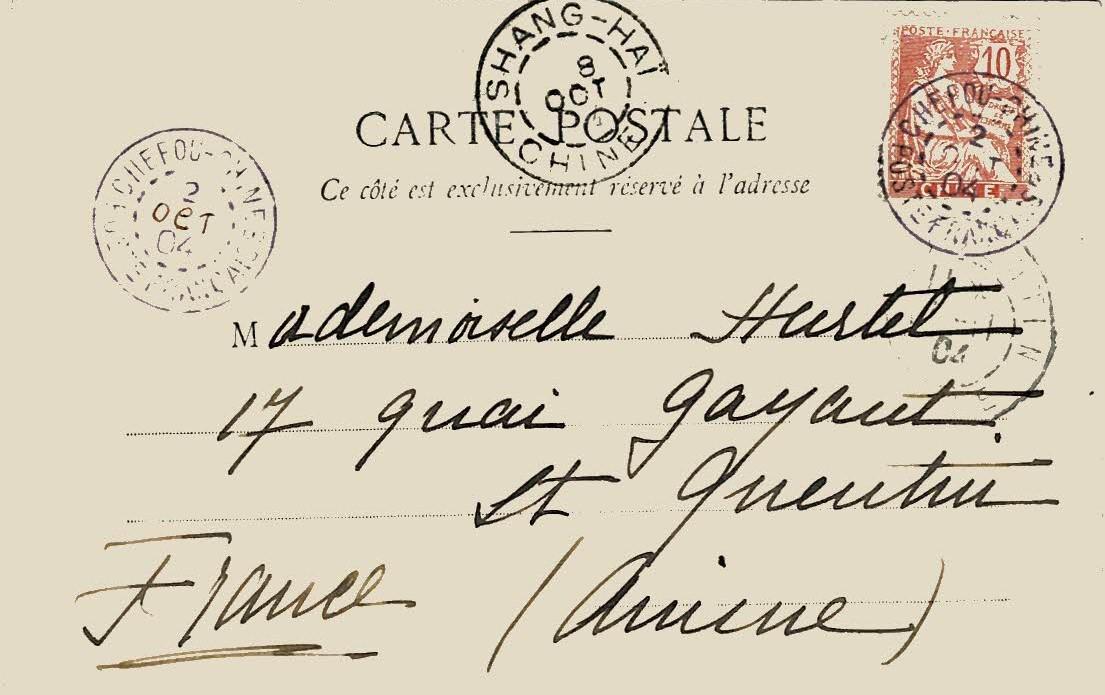 SHANG-HAÏ
8
OCT
CHINE
POSTE FRANÇAISE
10
CHINE
CARTE POSTALE
Ce côté est exclusivement réservé à l'adresse
CHEFOU-CHINE
2
OCT
04
POSTE FRANÇAISE
CHEFOU-CHINE
2
04
POSTE FRANÇAISE
04
Mademoiselle Hurtel
17 quai Gayant
St Quentin
France (Aisne)